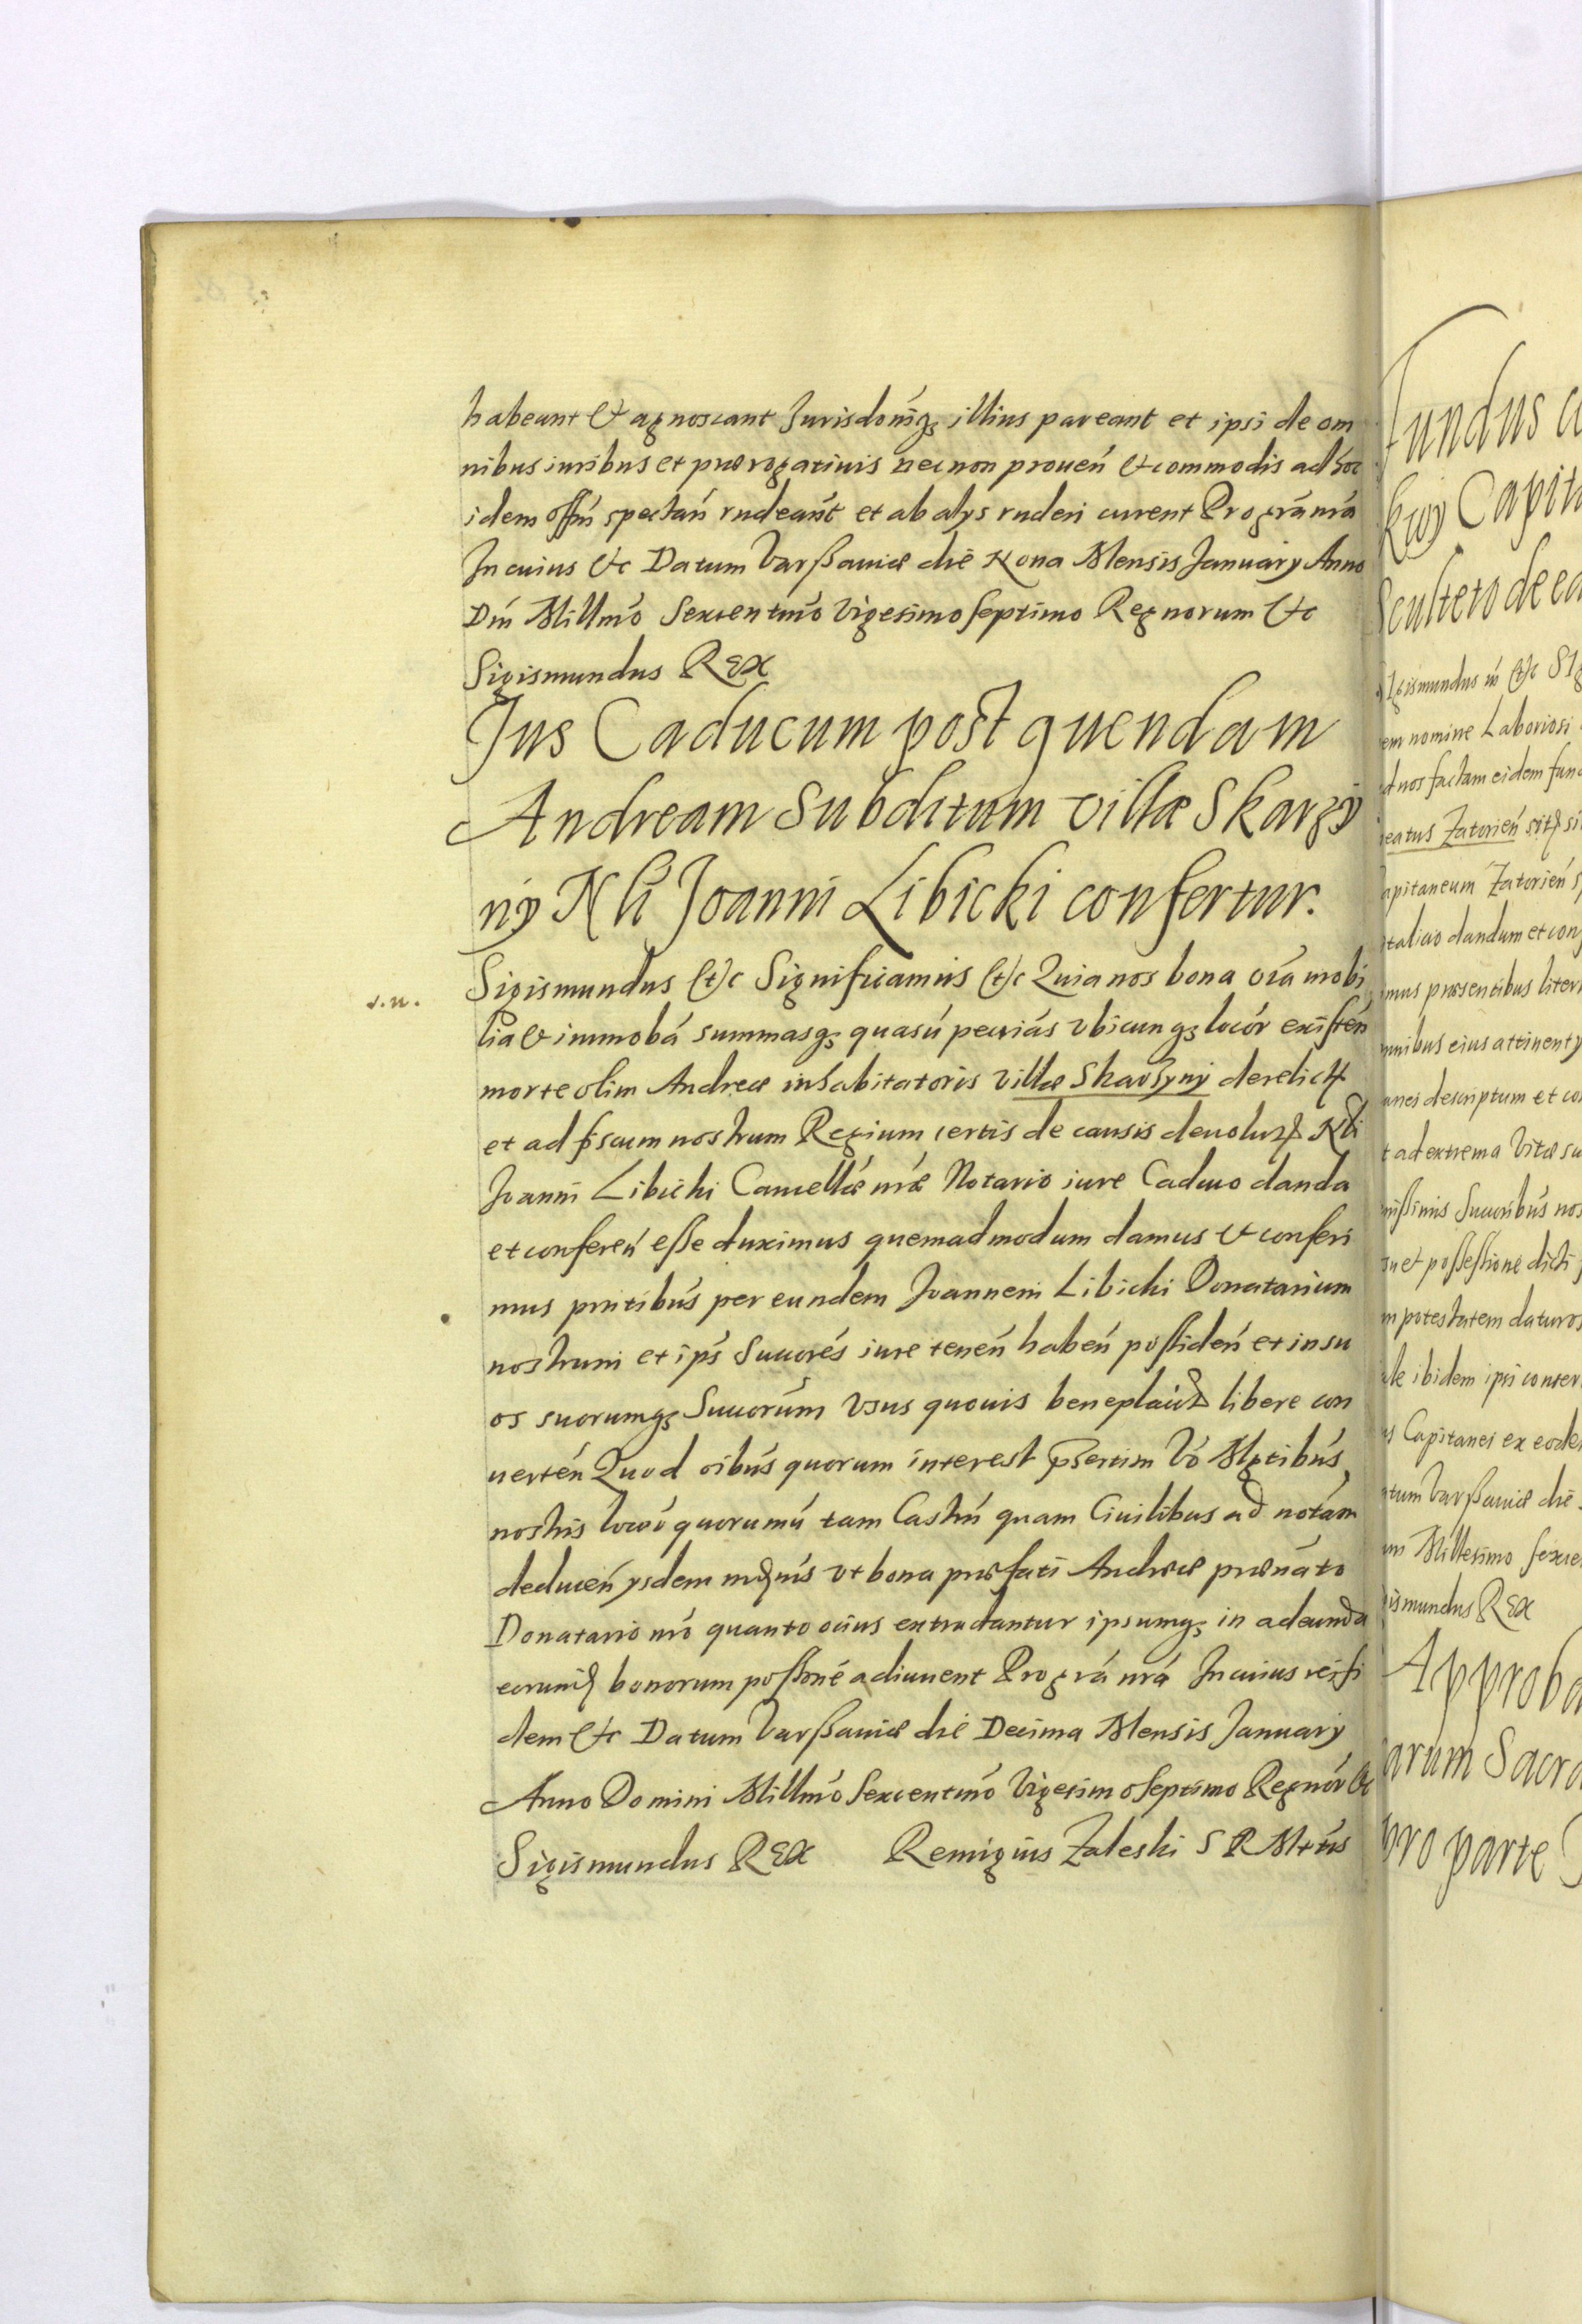 habeant & agnoscant Jurisdōnīq₃ illius pareant et ipsi de om
nibus iuribus et prærogatiuis necnon prouen̄ & commodis ad hoc
idem offm̄ spectan̄ rudeant et ab alys ruderi curent Pro gr̄a nr̄a
In cuius &c Datum Varßauiæ die Nona Mensis January Anno
Dn̄i Millmō Sexcentmō Vigesimo septimo Regnorum &c
Sigismundus REX
Jus Caducum post quendam
Andream Subditum villæ Skarży
ny Nli Joanni Libicki confertur.
Sigismundus &c Significamus &c Quia nos bona oīa mobi
lia & immobā summasq₃ quasū pecūias vbicunq₃ locor̄ existen̄
morte olim Andreæ inhabitatoris villæ Skarżyny derelict
et ad fiscum nostrum Regium certis de causis deuolut Nli
Joanni Libicki Cancellæ nr̄æ Notario iure Caduco danda
et conferen̄ eße duximus quemadmodum damus & conferi
mus pn̄tibus per eundem Joannem Libicki Donatarium
nostrum et ips̄ Succorēs iure tenen̄ haben̄ poßiden̄ et in su
os suorumq₃ Succorum vsus quouis beneplacit libere con
uerten̄ Quod oibus quorum interest p̄sertim vō Mgtibus
nostris locoū quorumū tam Castrn̄ quam Ciuilibus ad notam
deducen̄ ysdem mnūs vt bona præfati Andreæ prænāto
Donatario nrō quanto ocius extradantur ipsumq₃ in adeunda
eorund bonorum poßone adiuuent Pro gr̄a nr̄a In cuius rei fi
dem &c Datum Varßauiæ die Decima Mensis January
Anno Domini Millmō Sexcentmō Vigesimo septimo Regnor̄ &c
Sigismundus REX Remigius Zaleski S R Mttis
Fundus
Capit
Sculteto de ea
Sigismundus &c
em nomine Laboriosi
d nos factam eidem fun
eatus Zatorien̄
apitaneum Zatorien̄
italicio dandum et con
mus præsentibus liter
mnibus eius attinenty
anei descriptum et co
t ad extrema vitæ su
nißimis Succoribus nos
su et poßeßione dicti
m potestatem daturos
ale ibidem ipsi conser
s Capitanei ex eode
atum Varßauiæ die
ni Millesimo sexce
gismundus REX
Approba
arum Sacra
pro parte